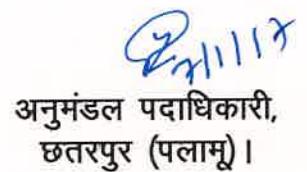 7/1/17
अनुमंडल पदाधिकारी,
छतरपुर (पलामू)।